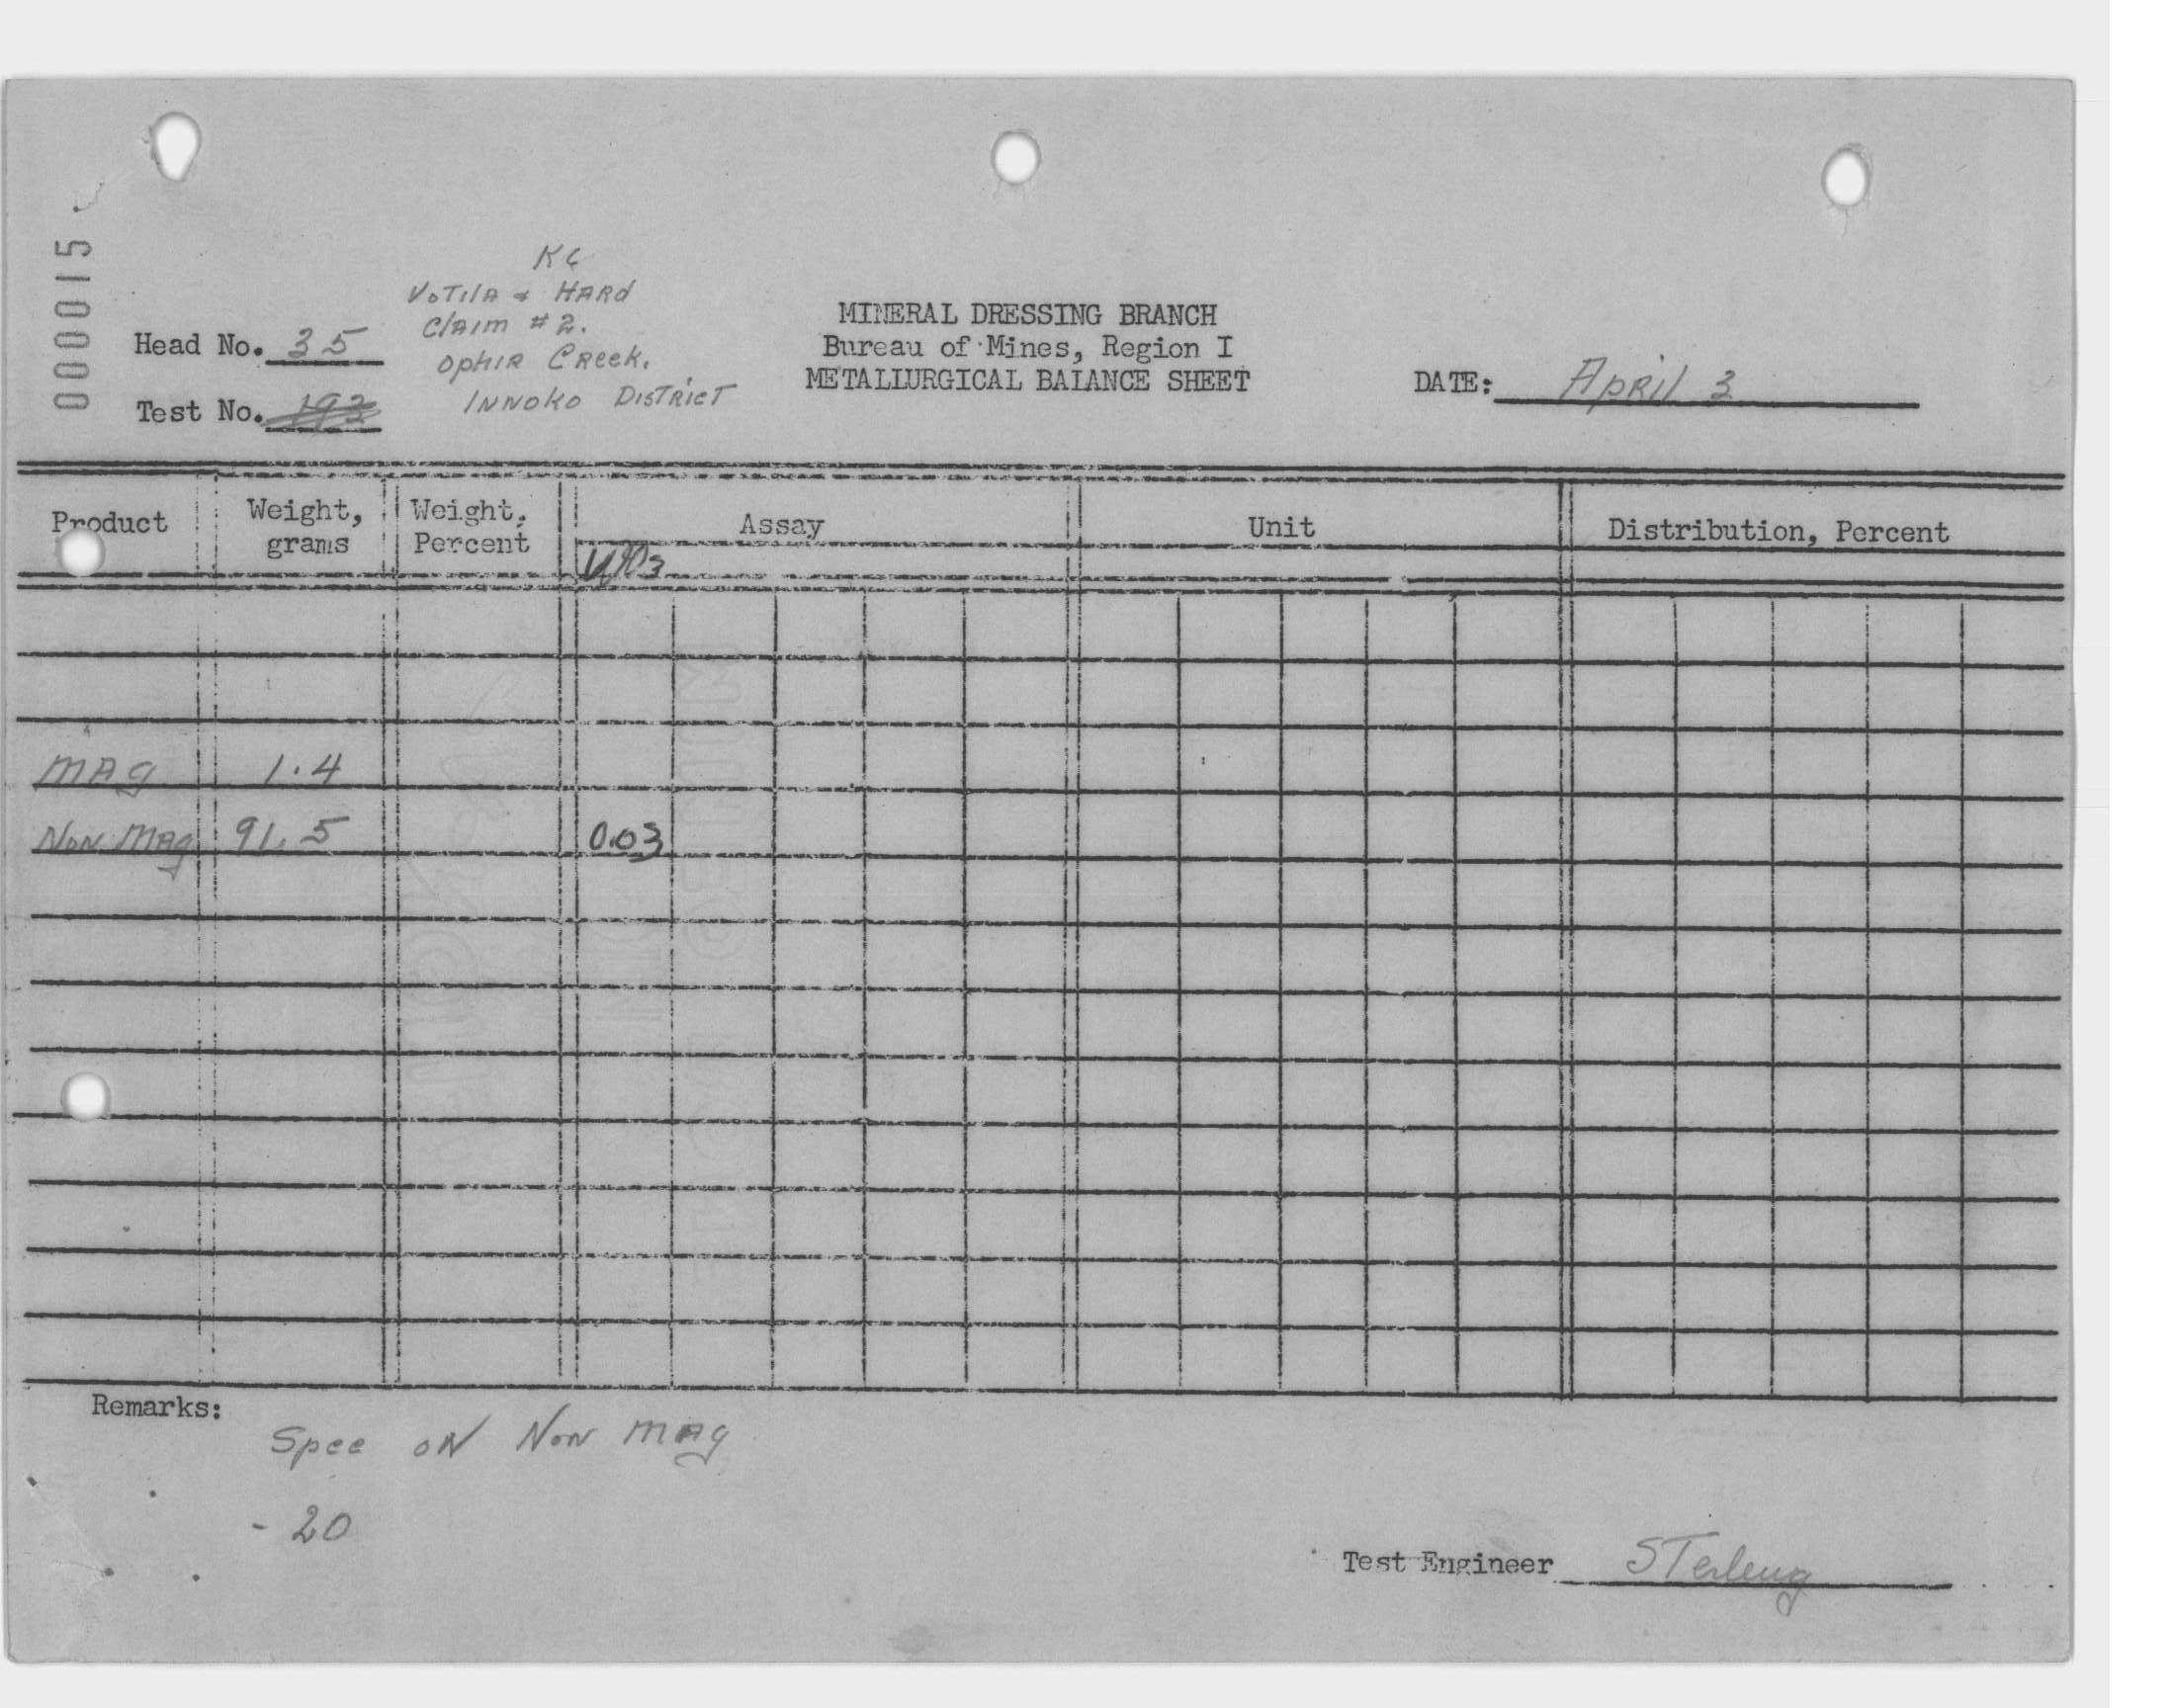 000015
K6
VOTILA & HARD
CLAIM # 2.
OPHIR CREEK.
INNOKO DISTRICT
Head No. 35
Test No. 193
MINERAL DRESSING BRANCH
Bureau of Mines, Region I
METALLURGICAL BALANCE SHEET
DATE: April 3
Product Weight, grams Weight, Percent Assay Unit Distribution, Percent
WO3
MAg 1.4
Non MAg 91.5 0.03
Remarks:
Spec on Non MAg
- 20
Test Engineer Sterling